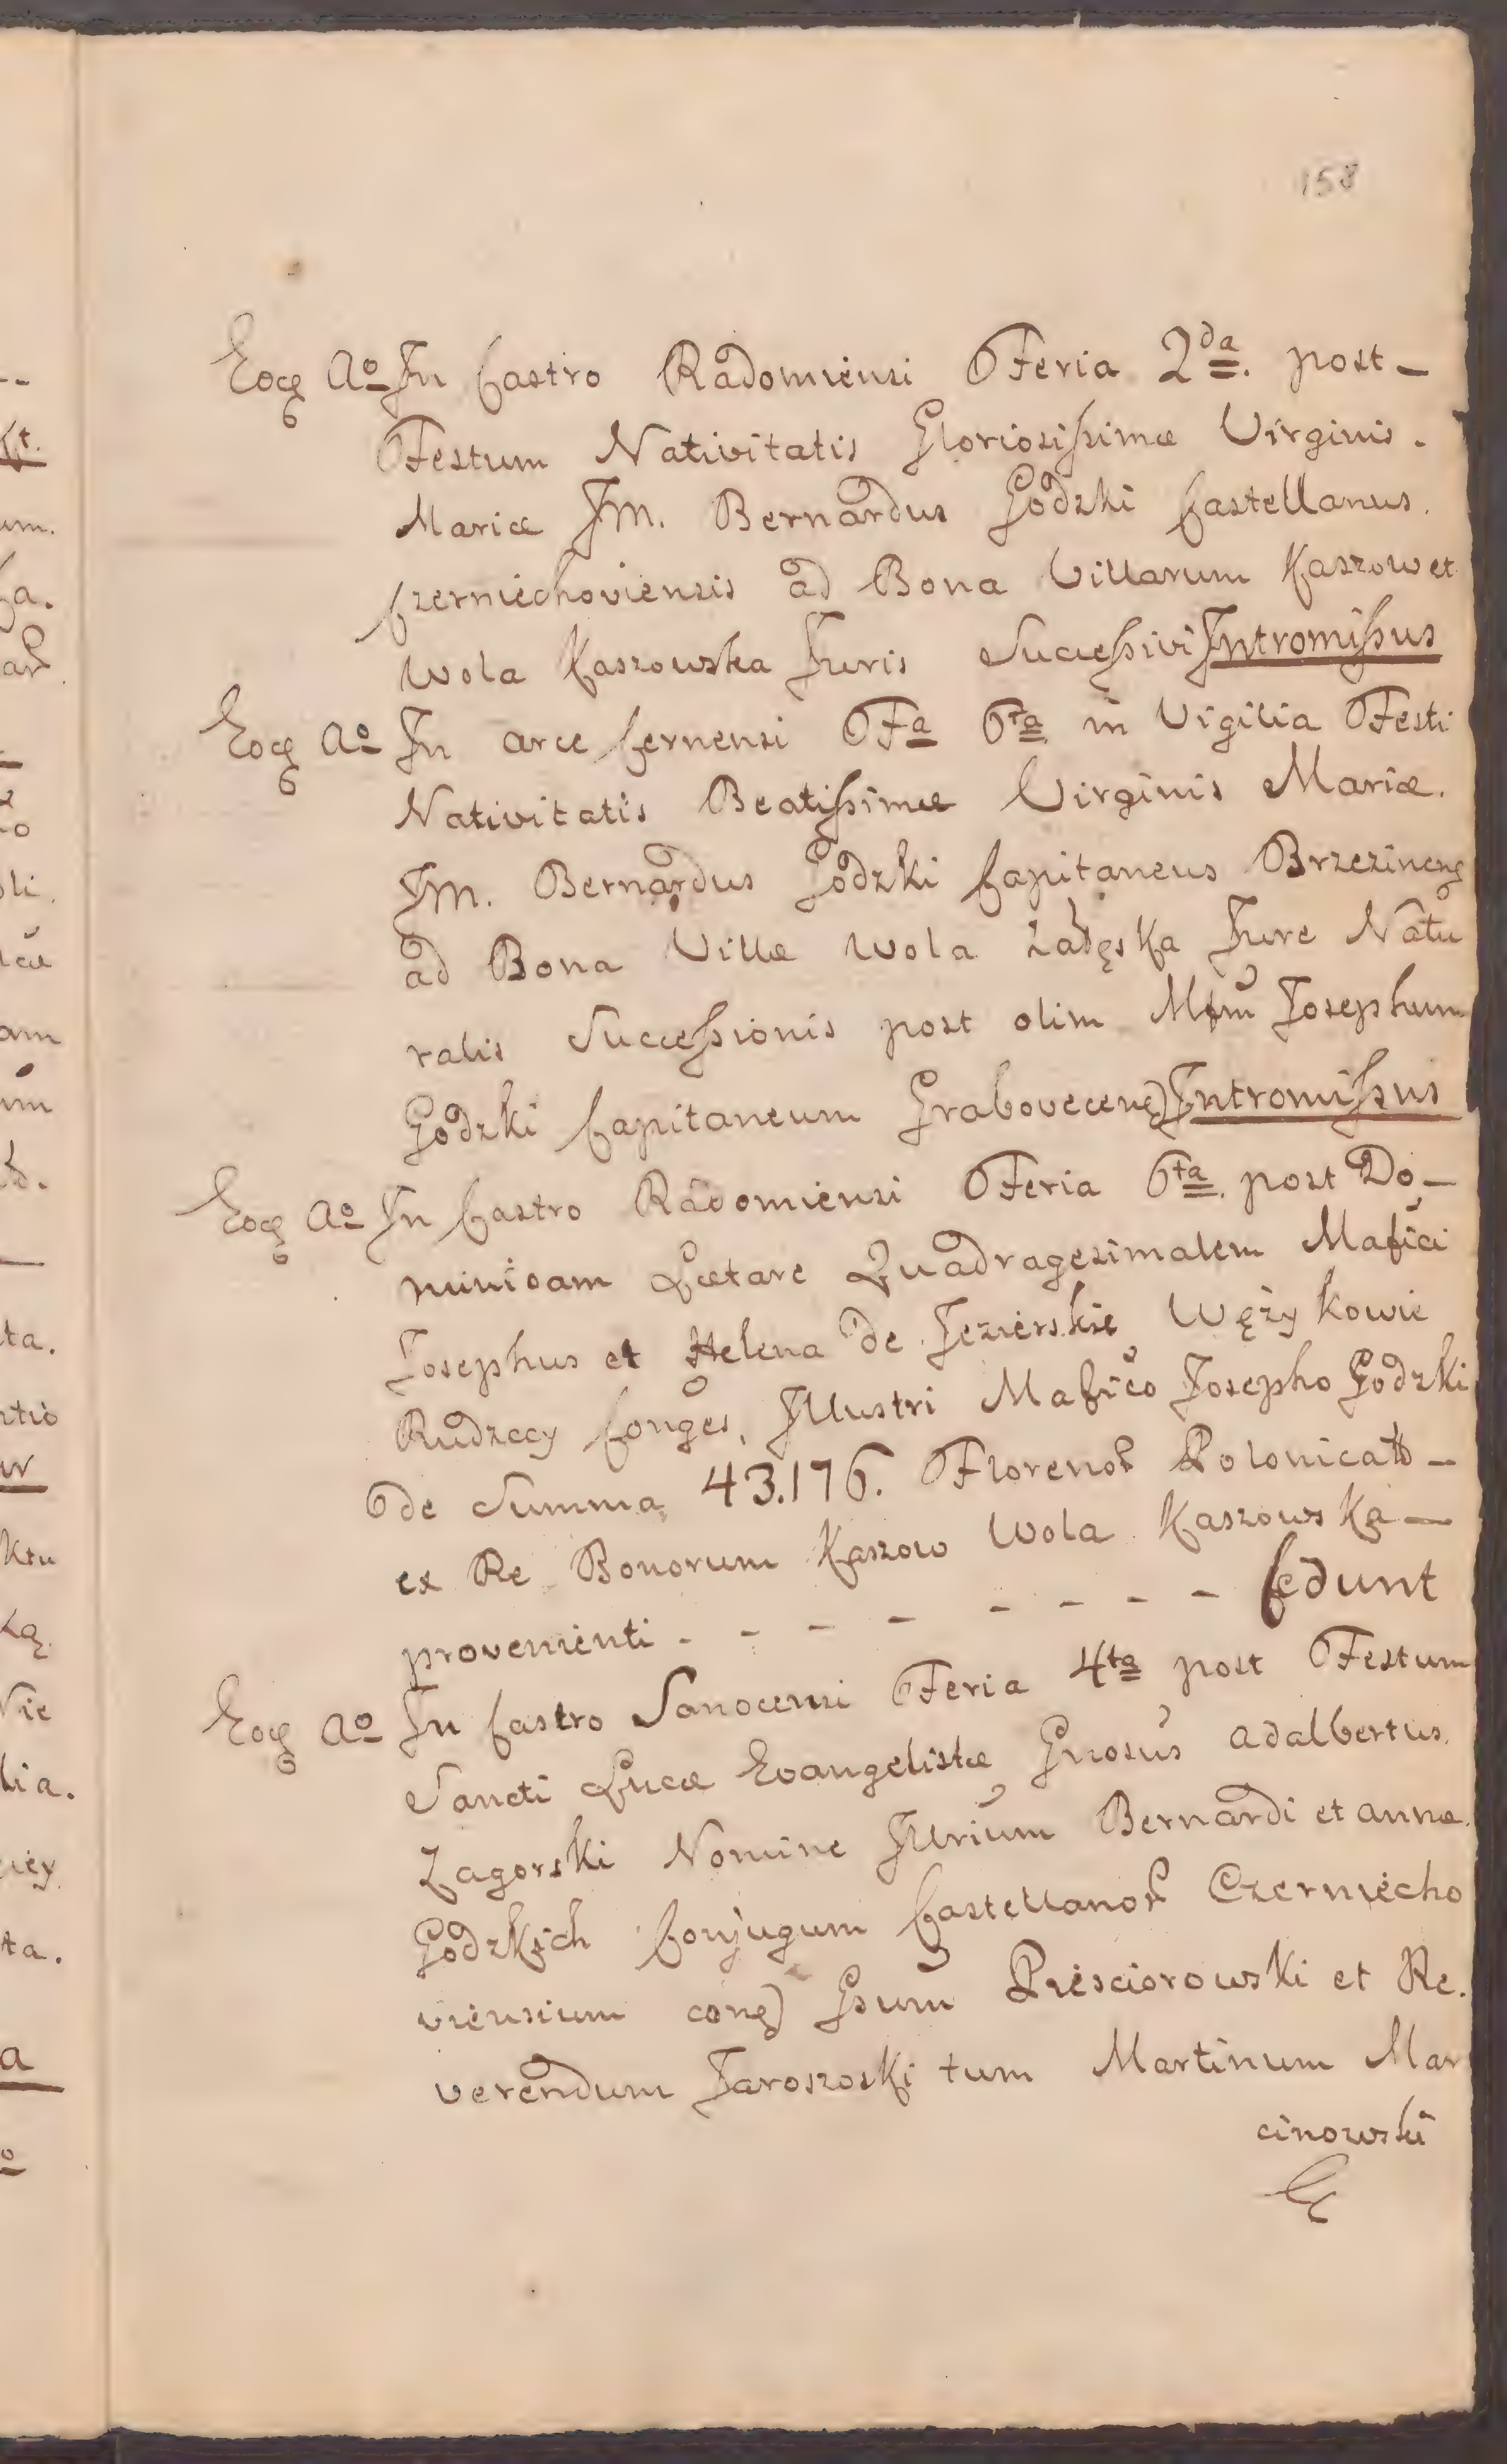 158
Eoq Ao In Castro Radomiensi Feria 2da. post –
Festum Nativitatis Gloriosissimæ Virginis.
Mariæ JM. Bernardus Godzki Castellanus.
Czerniechoviensis ad Bona Villarum Kaszow et
Wola Kaszowska Juris Successivi Intromissus
Eoq Ao In arce Cernensi Fa 6ta in Vigilia Festi
Nativitatis Beatissimæ Virginis Mariæ.
JM. Bernardus Godzki Capitaneus Brzezineng
ad Bona Villæ Wola Jure Natu
ralis Successionis post olim Josephum
Godzki Capitaneum Intromissus
Eoq Ao In Castro Radomiensi Feria 6ta. post Do –
minicam Lætare Quadragesimalem Mafici
Josephus et Helena de Jezierskie Wężykowie
Rudzccy Conges, Illustri Mafico Josepho Godzki
de Summa 43.176. Florenor Polonical –
ex Re Bonorum Kaszow Wola Kaszowska –
provenienti - - - - - - - - Cedunt
Eoq Ao In Castro Sanocensi Feria 4ta post Festum
Sancti Lucæ Evangelistæ Gnosus adalbertus.
Zagorski Nomine Illrium Bernardi et annæ.
Godzkich Conjugum Castellanor Czerniecho
viensium Gsum Piesciorowski et Re.
verendum Jaroszoski tum Martinum Mar
cinowski